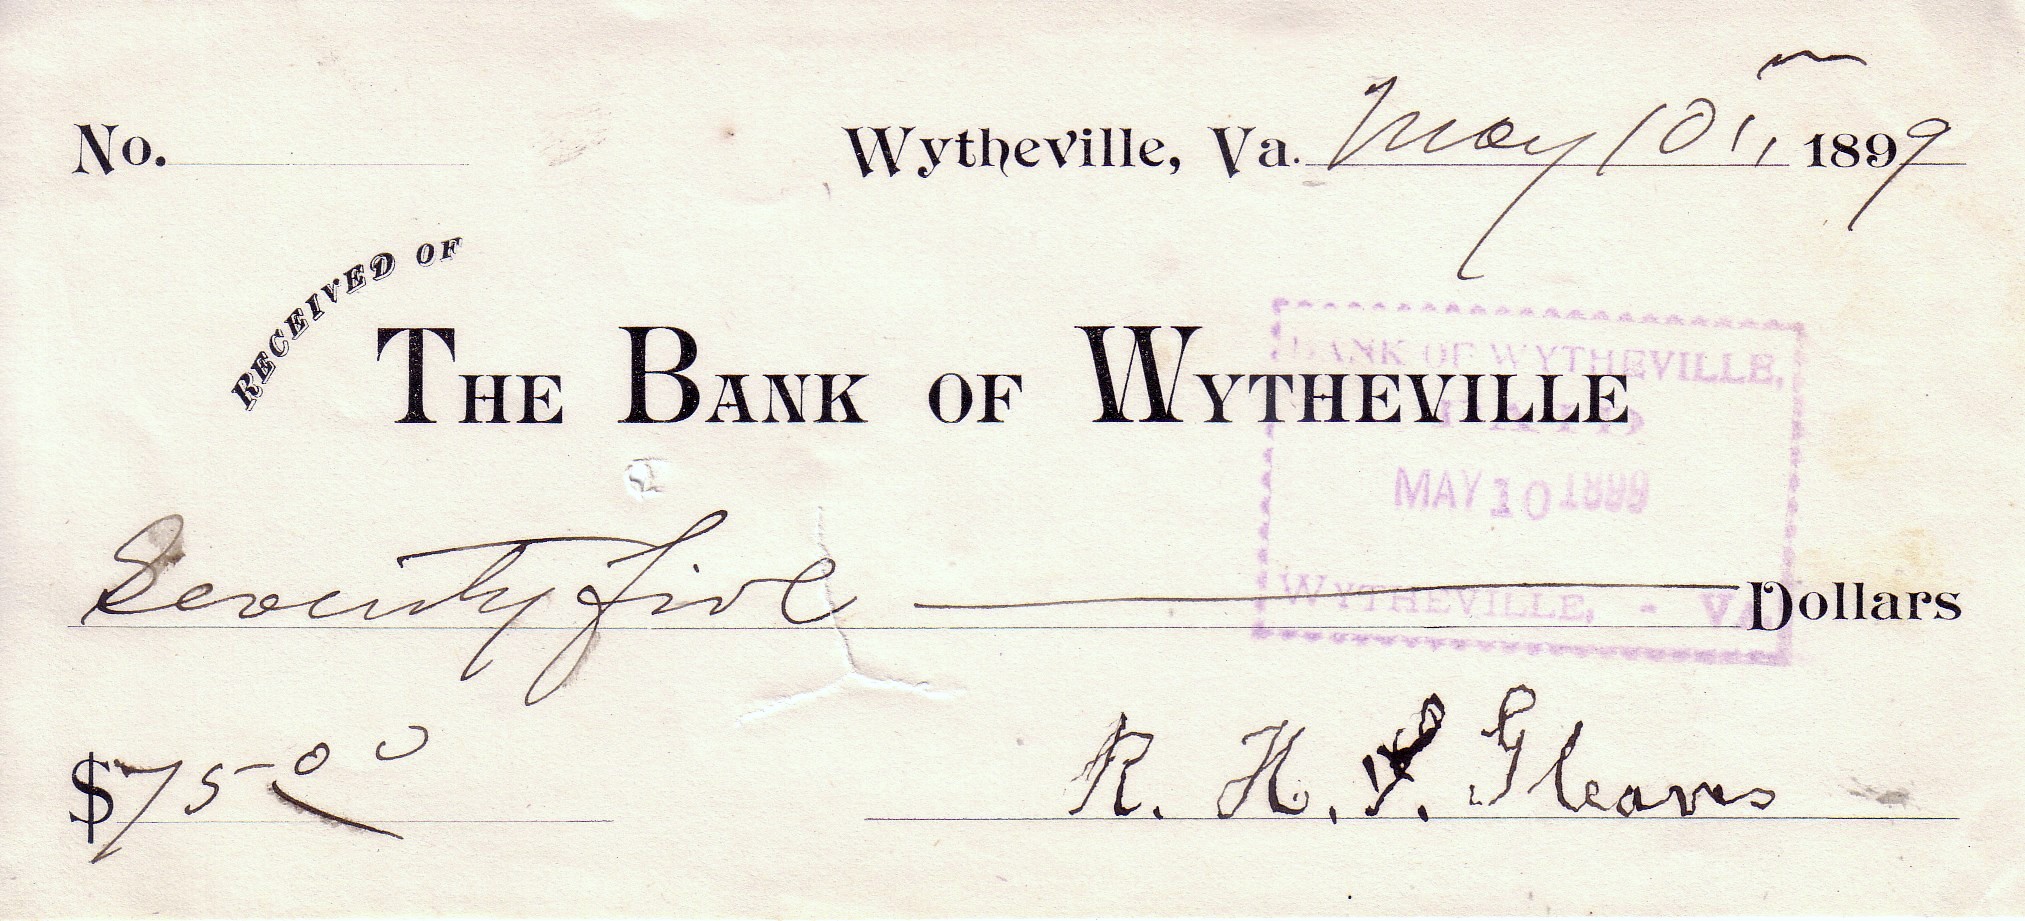 No.
Wytheville, Va. May 10th, 1899
RECEIVED OF
THE BANK OF WYTHEVILLE
BANK OF WYTHEVILLE,
PAID
MAY 10 1899
WYTHEVILLE, - VA.
Seventy five Dollars
$75.00
R. H. Gleaves